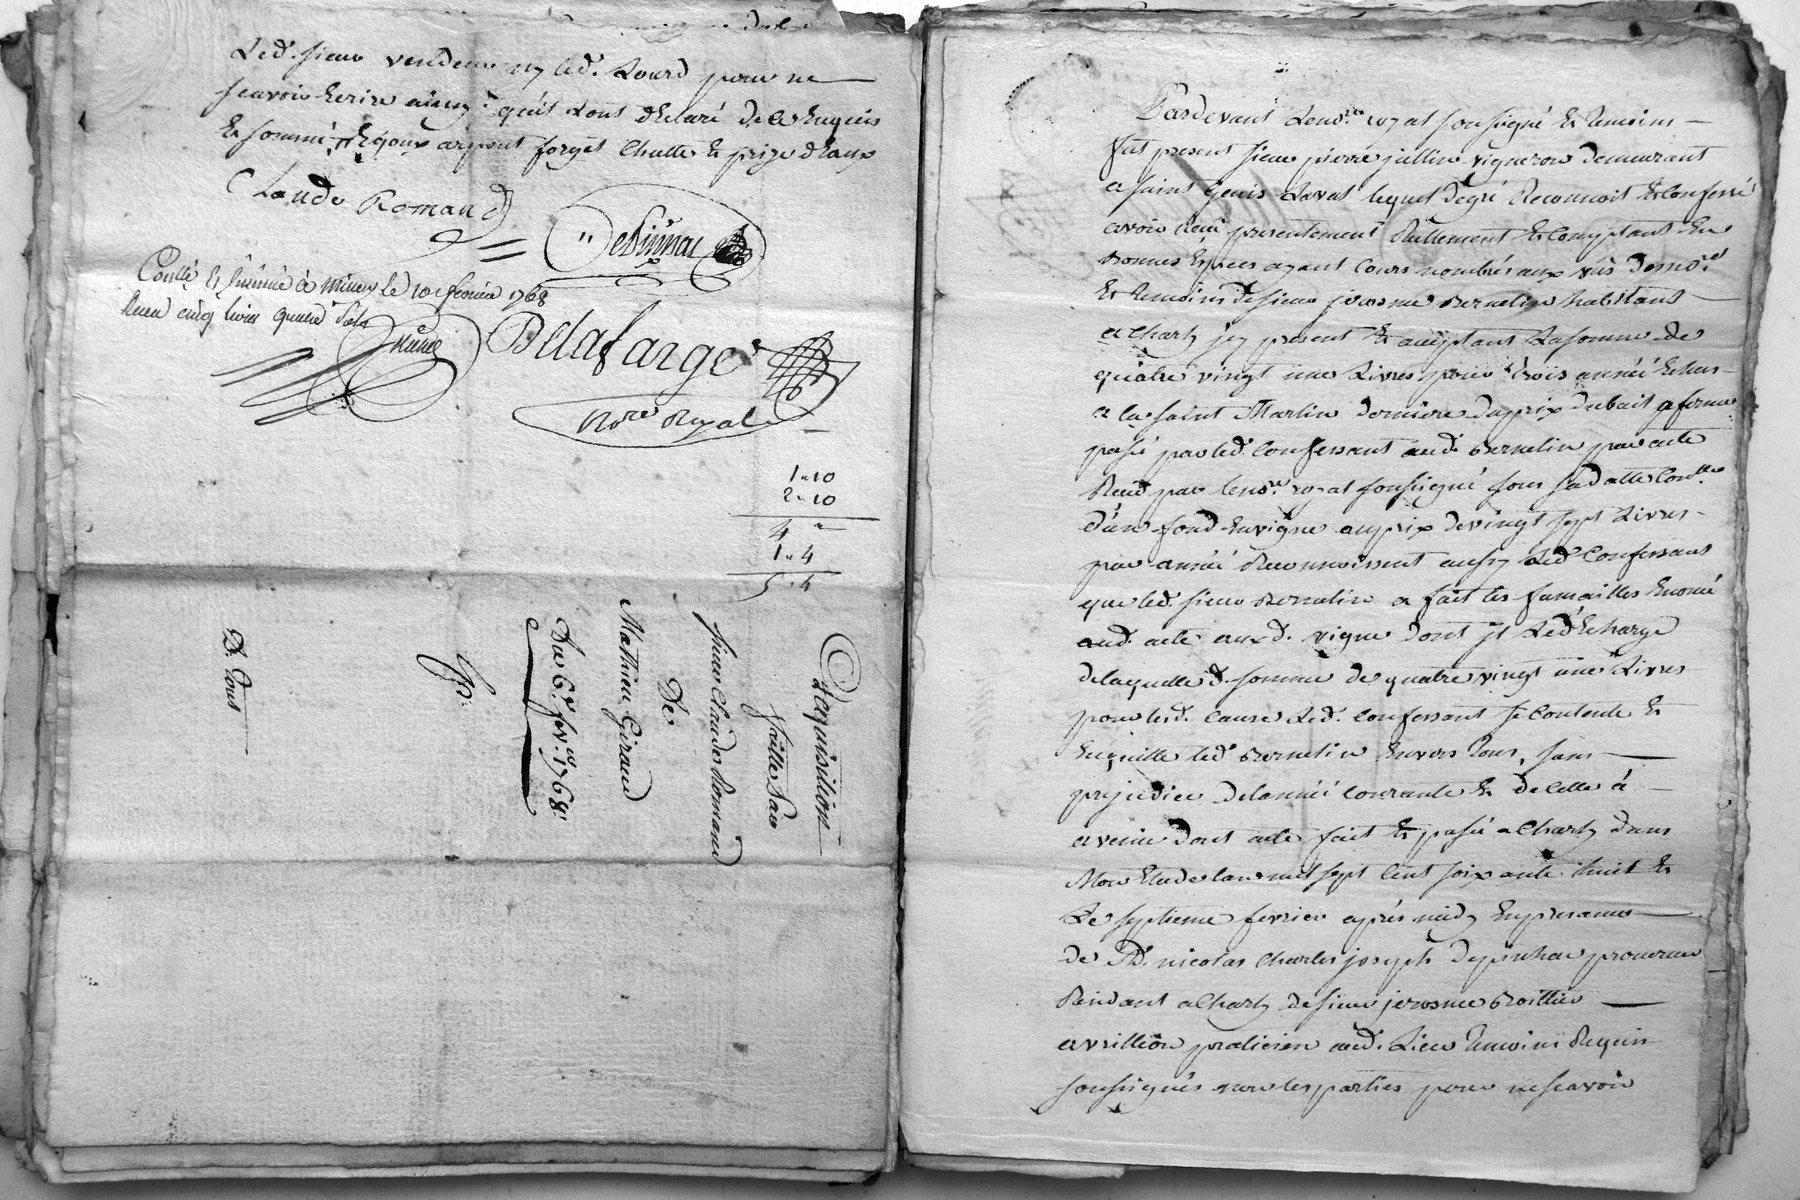 Led. sieur vendeur ny led. Lourd pour ne
scavoir Ecrire ainsy qu'ils Lont declaré de ce Enquis
Et sommé forget Chutte Et prize deaux
Claude Romand
Depinhac
Conllé Et à Mizery le 10e fevrier 1768
Receu cinq livres quatre sols
Delafarge
Nore Royal
1 " 10
2 " 10
4 "
1 " 4
5 " 4
Acquisitions
faitte Par
sieur Claude Romand
De
Mathieu Giraud
Du 6e fevr. 1768
Pardevant Leno.re royal soussigné Et temoins
fut present sieur pierre jullin vigneron demeurant
a saint genis Laval lequel de gré Reconnoit Et Confesse
avoir Receu presentement Reellement Et Comptant En
bonnes Especes ayant Cours nombrés aux vüs demo.re
Et temoins de sieur jerosme Bernelin habitant
a Charly jcy present Et aceptant La somme de
quatre vingt une Livres pour trois année Echus
a la saint Martin derniere du prix du bail a ferme
passé par led. Confessant aud. Bernelin par acte
Receu par leno.re royal soussigné sous sa datte
d'un fond En vigne au prix de vingt sept Livres
par année Reconnoissent aussy Led. Confessant
que led. sieur Bernelin a fait les Enoncé
aud. acte auxd. vigne dont jl Led. decharge
de laquelle d. somme de quatre vingt une Livres
pour lesd. cause Led. Confessant se Contente Et
En quitte led. Bernelin Envers tous, sans
prejudice de lannée Courante Et de Celle à
avenir dont acte fait Et passé a Charly dans
Mon Etude lan mil sept Cent soixante huit Et
Le septieme fevrier après midy En presence
de M.e nicolas Charles joseph Depinhac procureur
Residant a Charly de sieur jerosme
avrillion praticien aud. Lieu temoins Requis
soussignés non les parties pour ne scavoir